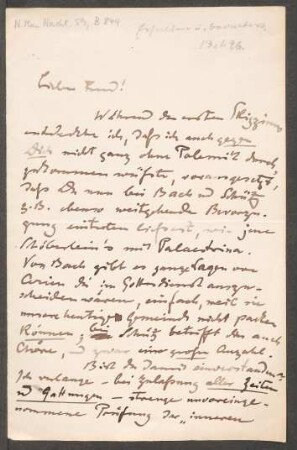 Lieber Freund!
Während der ersten Skizzierung
entdeckte ich, daß ich auch gegen
Dich nicht ganz ohne Polemik durch-
gekommen wäre, vorausgesetzt,
daß Du nun bei Bach u Schütz
z.B. ebenso weitgehende Bevorzu-
gung eintreten ließest, wie jene
Schöberlein's mit Palaestrina.
Von Bach gibt es ganze Lagen von
Arien die im Gottesdienst auszu-
scheiden wären, einfach, weil sie
unserer heutigen Gemeinde nicht passen
können; bei Schütz betrifft das auch
Chöre, und zwar eine große Anzahl.
Bist Du damit einverstanden?
Ich verlange - bei Zulassung aller Zeiten
und Gattungen - strenge unvoreinge-
nommene Prüfung der "inneren